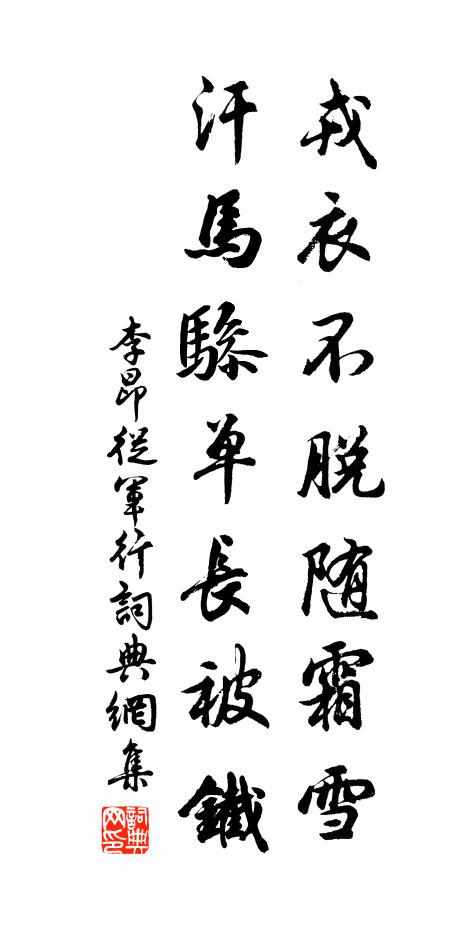 戎衣不脱随霜雪
汗馬驂单長被鐵
李昂從軍行詞典網集
詞典网印